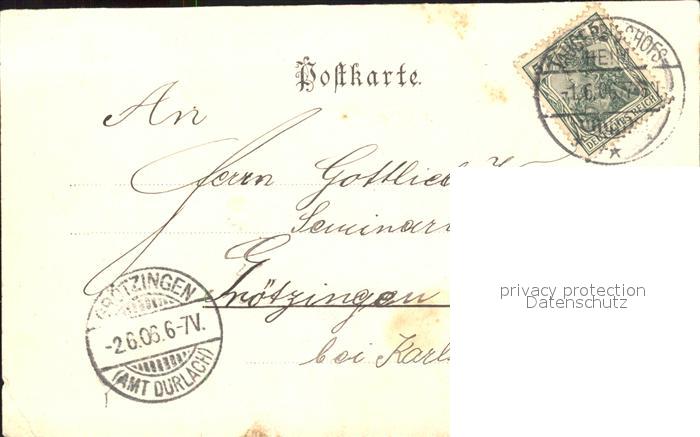 Postkarte.
An
Herrn Gottlieb
Seminar
Grötzingen
bei Karls
HEIM
-1.6.06.
DEUTSCHES REICH
GRÖTZINGEN
-2.6.06.6-7V.
(AMT DURLACH)
privacy protection
Datenschutz